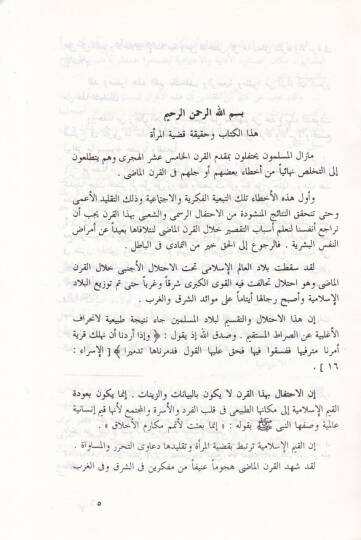 بسم الله الرحمن الرحيم
هذا الكتاب وحقيقة قضية المرأة
مازال المسلمون يحتفلون بمقدم القرن الخامس عشر الهجرى وهم يتطلعون
إلى التخلص نهائياً من أخطاء بعضهم أو جلهم فى القرن الماضى .
وأول هذه الأخطاء تلك التبعية الفكرية والاجتماعية وذلك التقليد الأعمى
وحتى تتحقق النتائج المنشودة من الاحتفال الرسمى والشعبى بهذا القرن يجب أن
نراجع أنفسنا لنعلم أسباب التقصير خلال القرن الماضى لنتلافاها بعيداً عن أمراض
النفس البشرية . فالرجوع إلى الحق خير من التمادى فى الباطل .
لقد سقطت بلاد العالم الإسلامى تحت الاحتلال الأجنبى خلال القرن
الماضى وهو احتلال تحالفت فيه القوى الكبرى شرقاً وغرباً حتى تم توزيع البلاد
الإسلامية وأصبح رجالها أيتاماً على موائد الشرق والغرب .
إن هذا الاحتلال والتقسيم لبلاد المسلمين جاء نتيجة طبيعية لانحراف
الأغلبية عن الصراط المستقيم . وصدق الله إذ يقول : ﴿ وإذا أردنا أن نهلك قرية
أمرنا مترفيها ففسقوا فيها فحق عليها القول فدمرناها تدميراً ﴾ [ الإسراء :
١٦ ] .
إن الاحتفال بهذا القرن لا يكون بالبيانات والزينات . إنما يكون بعودة
القيم الإسلامية إلى مكانها الطبيعى فى قلب الفرد والأسرة والمجتمع لأنها قيم إنسانية
عالمية وصفها النبى ﷺ بقوله : « إنما بعثت لأتمم مكارم الأخلاق » .
إن القيم الإسلامية ترتبط بقضية المرأة وتقليدها دعاوى التحرر والمساواة .
لقد شهد القرن الماضى هجوماً عنيفاً من مفكرين فى الشرق وفى الغرب
٥